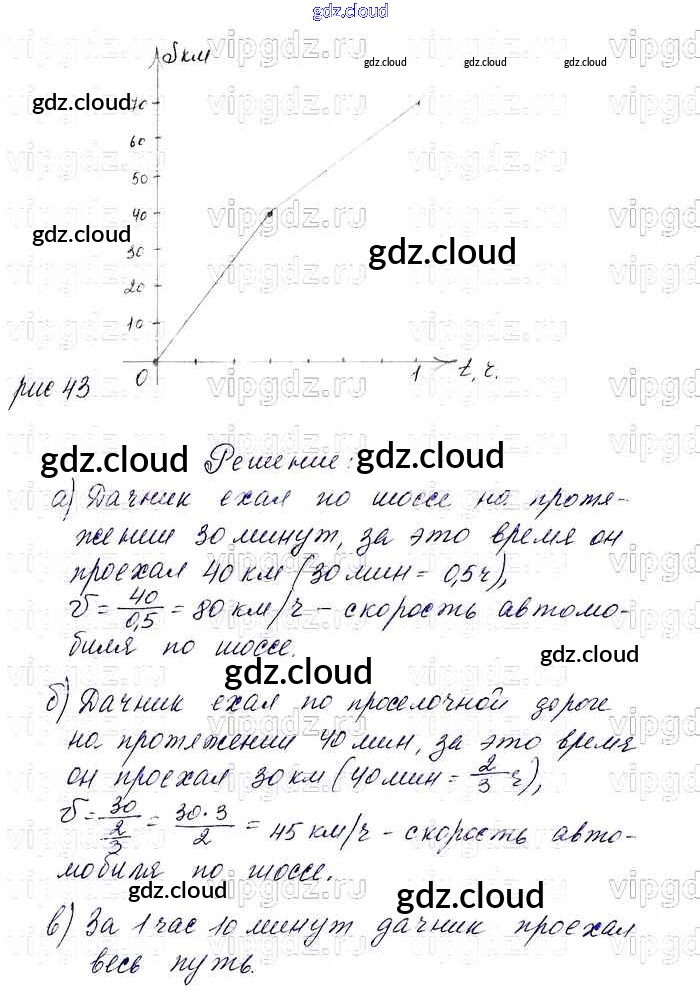 gdz.cloud
S км
gdz.cloud gdz.cloud gdz.cloud
gdz.cloud 70
60
50
40
gdz.cloud
30
gdz.cloud
20
10
0 1 t, ч.
рис 43
gdz.cloud Решение: gdz.cloud
а) Дачник ехал по шоссе на протя-
жении 30 минут, за это время он
проехал 40 км (30 мин = 0,5 ч),
V = 40/0,5 = 80 км/ч - скорость автомо-
биля по шоссе.
gdz.cloud
gdz.cloud
б) Дачник ехал по проселочной дороге
на протяжении 40 мин, за это время
он проехал 30 км (40 мин = 2/3 ч),
V = 30/(2/3) = 30·3/2 = 45 км/ч - скорость авто-
мобиля по шоссе.
gdz.cloud
gdz.cloud
в) За 1 час 10 минут дачник проехал
весь путь.
gdz.cloud
vipgdz.ru